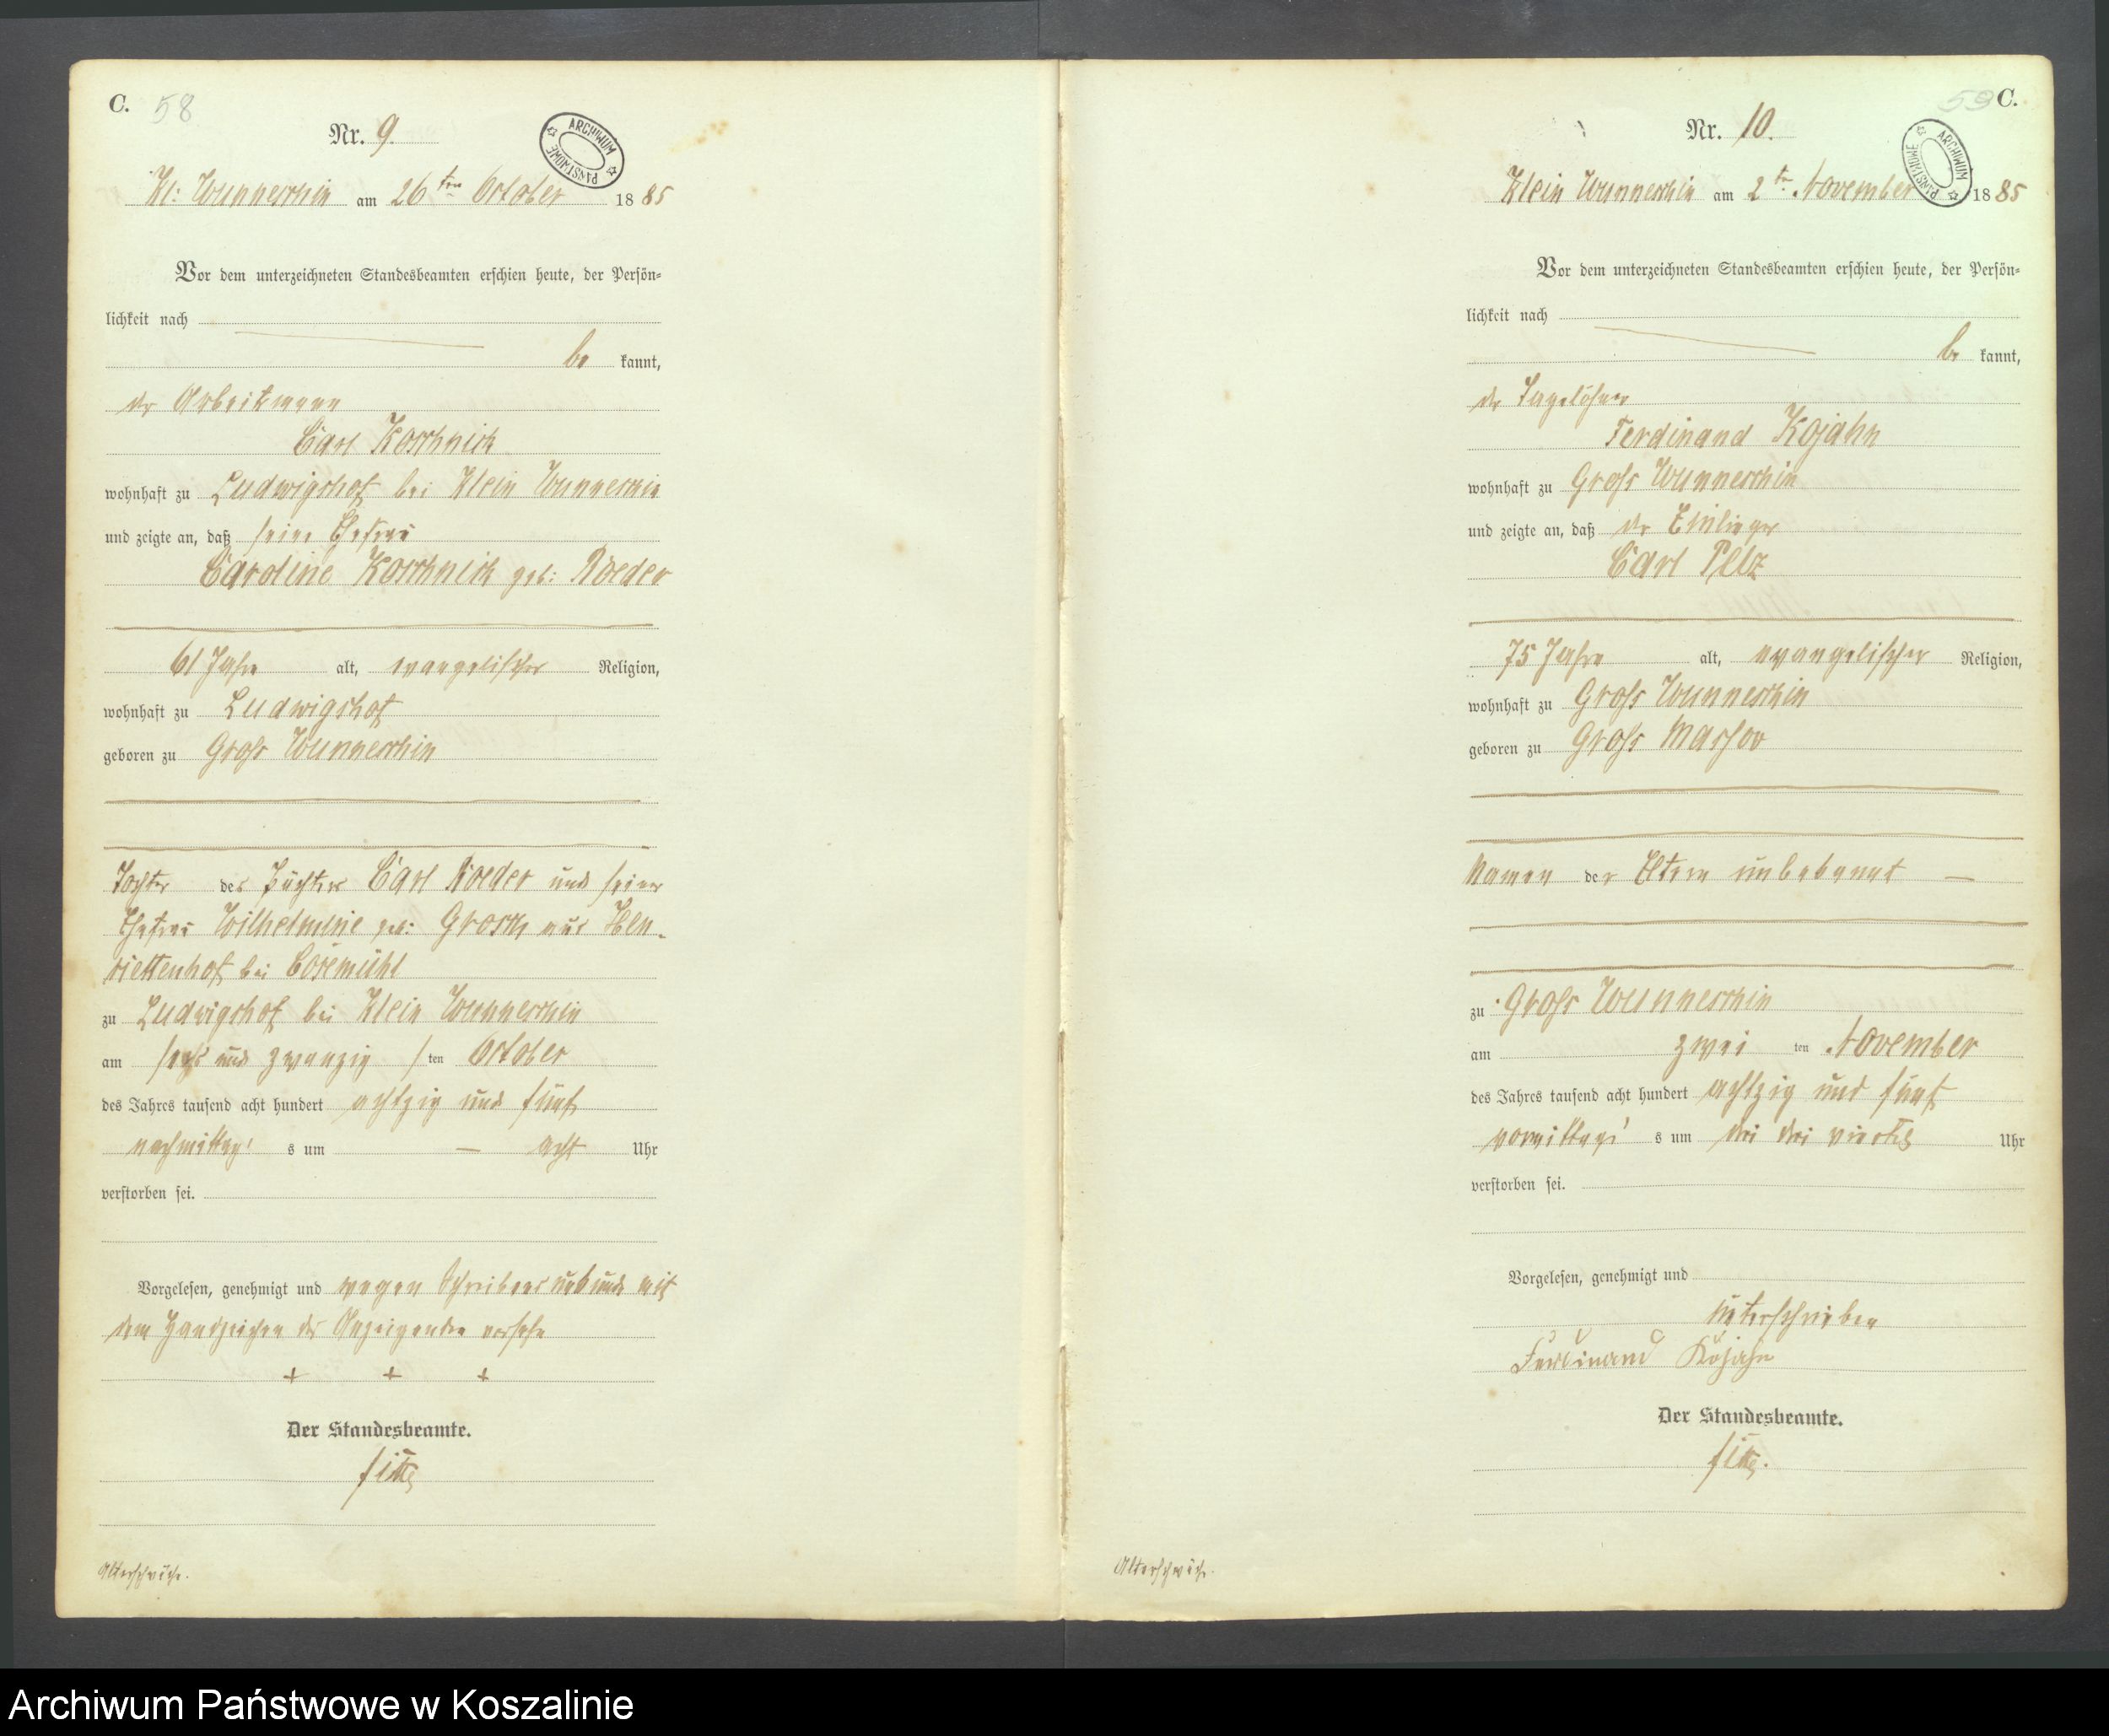 C. 58
Nr. 9.
ARCHIWUM PAŃSTWOWE
Kl: Wunneschin am 26ten October 1885
Vor dem unterzeichneten Standesbeamten erschien heute, der Persön-
lichkeit nach
be kannt,
der Arbeitsmann
Carl Koschnick
wohnhaft zu Ludwigshof bei Klein Wunneschin
und zeigte an, daß seine Ehefrau
Caroline Koschnick geb: Roeder
61 Jahre alt, evangelischer Religion,
wohnhaft zu Ludwigshof
geboren zu Groß Wunneschin
Tochter des Carl Roeder und seiner
Ehefrau Wilhelmine geb: aus Hen-
riettenhof bei
zu Ludwigshof bei Klein Wunneschin
am sechs und zwanzig s ten October
des Jahres tausend acht hundert achtzig und fünf
nachmittag's um — acht Uhr
verstorben sei.
Vorgelesen, genehmigt und wegen Schreibensunkunde mit
dem Handzeichen des Anzeigenden versehn
+ + +
Der Standesbeamte.
Altersschwäche.
59 C.
Nr. 10.
ARCHIWUM PAŃSTWOWE
Klein Wunneschin am 2ten November 1885
Vor dem unterzeichneten Standesbeamten erschien heute, der Persön-
lichkeit nach
be kannt,
der Tagelöhner
Ferdinand Kojahn
wohnhaft zu Groß Wunneschin
und zeigte an, daß der Einlieger
Carl Pelz
75 Jahre alt, evangelischer Religion,
wohnhaft zu Groß Wunneschin
geboren zu Groß Massow
Namen der Eltern unbekannt —
zu Groß Wunneschin
am zwei ten November
des Jahres tausend acht hundert achtzig und fünf
vormittags' s um drei drei viertel Uhr
verstorben sei.
Vorgelesen, genehmigt und
unterschrieben
Ferdinand Kojahn
Der Standesbeamte.
Altersschwäche.
Archiwum Państwowe w Koszalinie